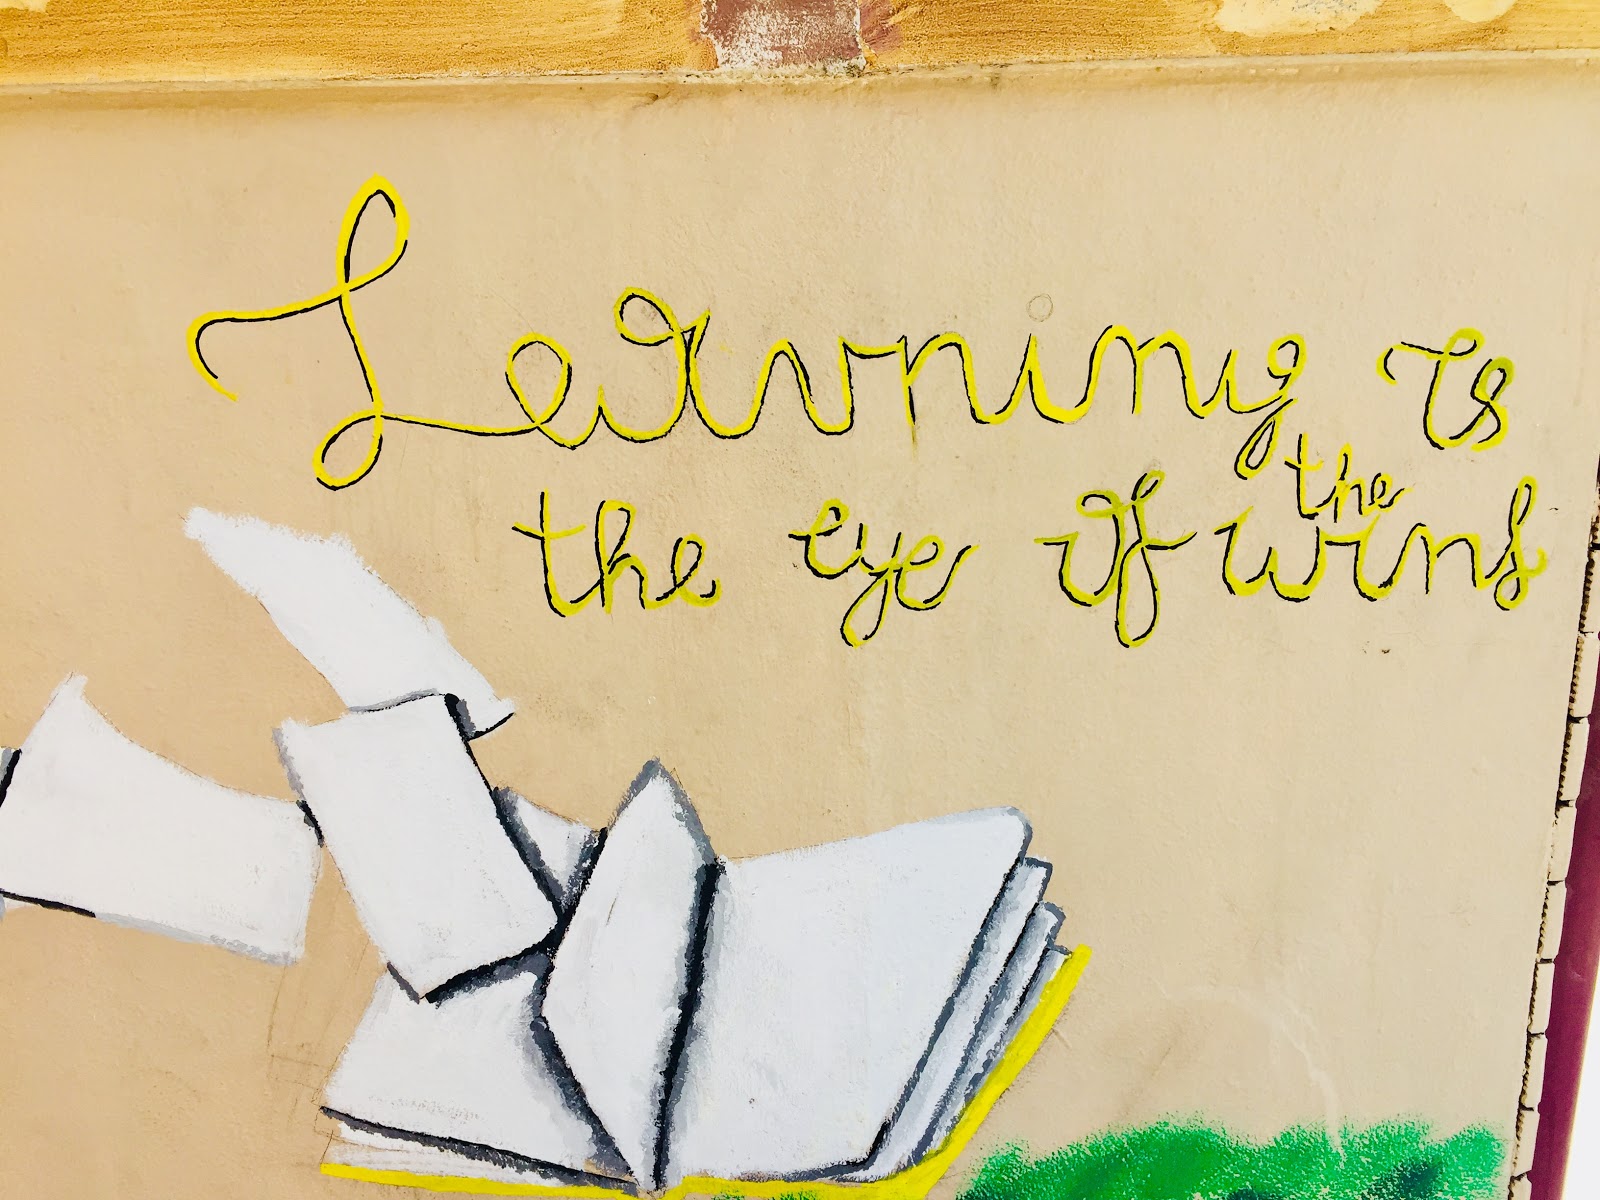 Learning is
the eye of the wins